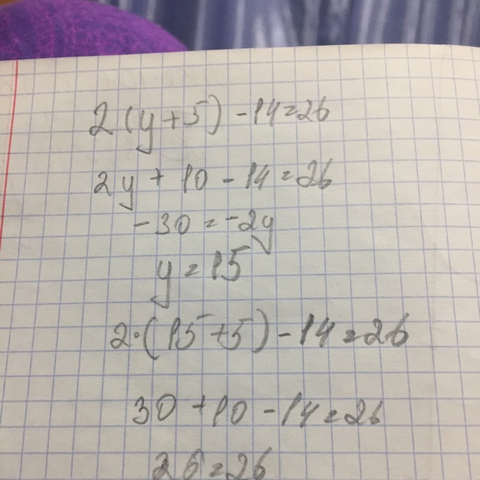 2(y+5)-14=26
2y+10-14=26
-30=-2y
y=15
2·(15+5)-14=26
30+10-14=26
26=26